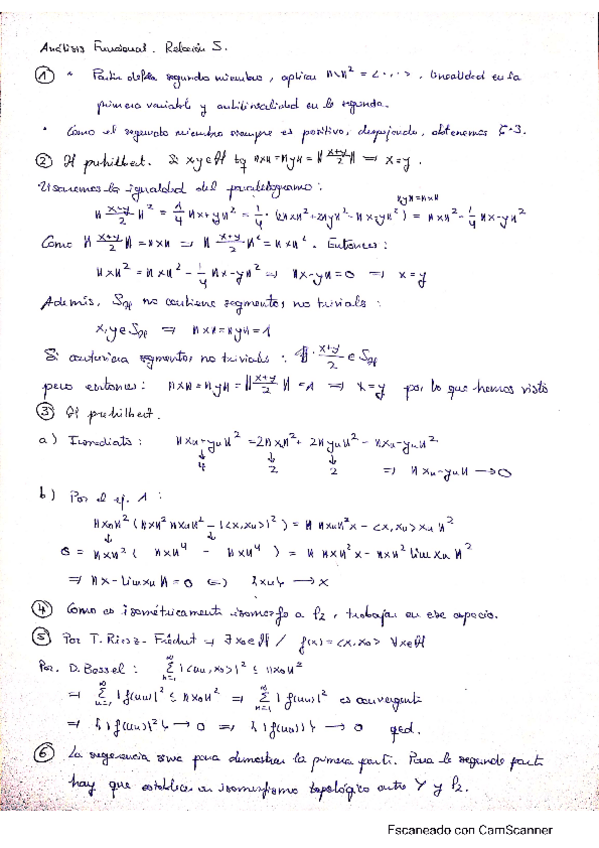 Análisis Funcional. Relación 5.
① • Partir del segundo miembro, aplicar ||·||² = <·,·>, linealidad en la
primera variable y antilinealidad en la segunda.
• Como el segundo miembro siempre es positivo, despejando, obtenemos
② H prehilbert. Si x,y∈H tq ||x|| = ||y|| = ||(x+y)/2|| ⟹ x=y.
Usaremos la igualdad del paralelogramo:
||y||=||x||
||(x+y)/2||² = 1/4 ||x+y||² = 1/4 · (2||x||² + 2||y||² - ||x-y||²) = ||x||² - 1/4 ||x-y||²
Como ||(x+y)/2|| = ||x|| ⟹ ||(x+y)/2||² = ||x||². Entonces:
||x||² = ||x||² - 1/4 ||x-y||² ⟹ ||x-y|| = 0 ⟹ x=y
Además, S_H no contiene segmentos no triviales:
x,y∈S_H ⟹ ||x|| = ||y|| = 1
Si contuviera segmentos no triviales: (x+y)/2 ∈ S_H
pero entonces: ||x|| = ||y|| = ||(x+y)/2|| = 1 ⟹ x=y por lo que hemos visto
③ H prehilbert.
a) Inmediato: ||xn+yn||² = 2||xn||² + 2||yn||² - ||xn-yn||²
↓ ↓ ↓
4 2 2 ⟹ ||xn-yn|| → 0
b) Por el ej. 1:
||xn||² (||x||² ||xn||² - |<x,xn>|²) = || ||xn||² x - <x,xn> xn ||²
↓ ↓
0 = ||x||² ( ||x||⁴ - ||x||⁴ ) = || ||x||² x - ||x||² lim xn ||²
⟹ ||x - lim xn|| = 0 ⟺ {xn} → x
④ Como es isométricamente isomorfo a l₂, trabajar en ese espacio.
⑤ Por T. Riesz-Fréchet → ∃ x₀∈H / f(x) = <x,x₀> ∀x∈H
Por D. Bessel: ∑_{n=1}^∞ |<un,x₀>|² ≤ ||x₀||²
⟹ ∑_{n=1}^∞ |f(un)|² ≤ ||x₀||² ⟹ ∑_{n=1}^∞ |f(un)|² es convergente
⟹ {|f(un)|²} → 0 ⟹ {|f(un)|} → 0 qed.
⑥ La sugerencia sirve para demostrar la primera parte. Para la segunda parte
hay que establecer un isomorfismo topológico entre Y y l₂.
Escaneado con CamScanner